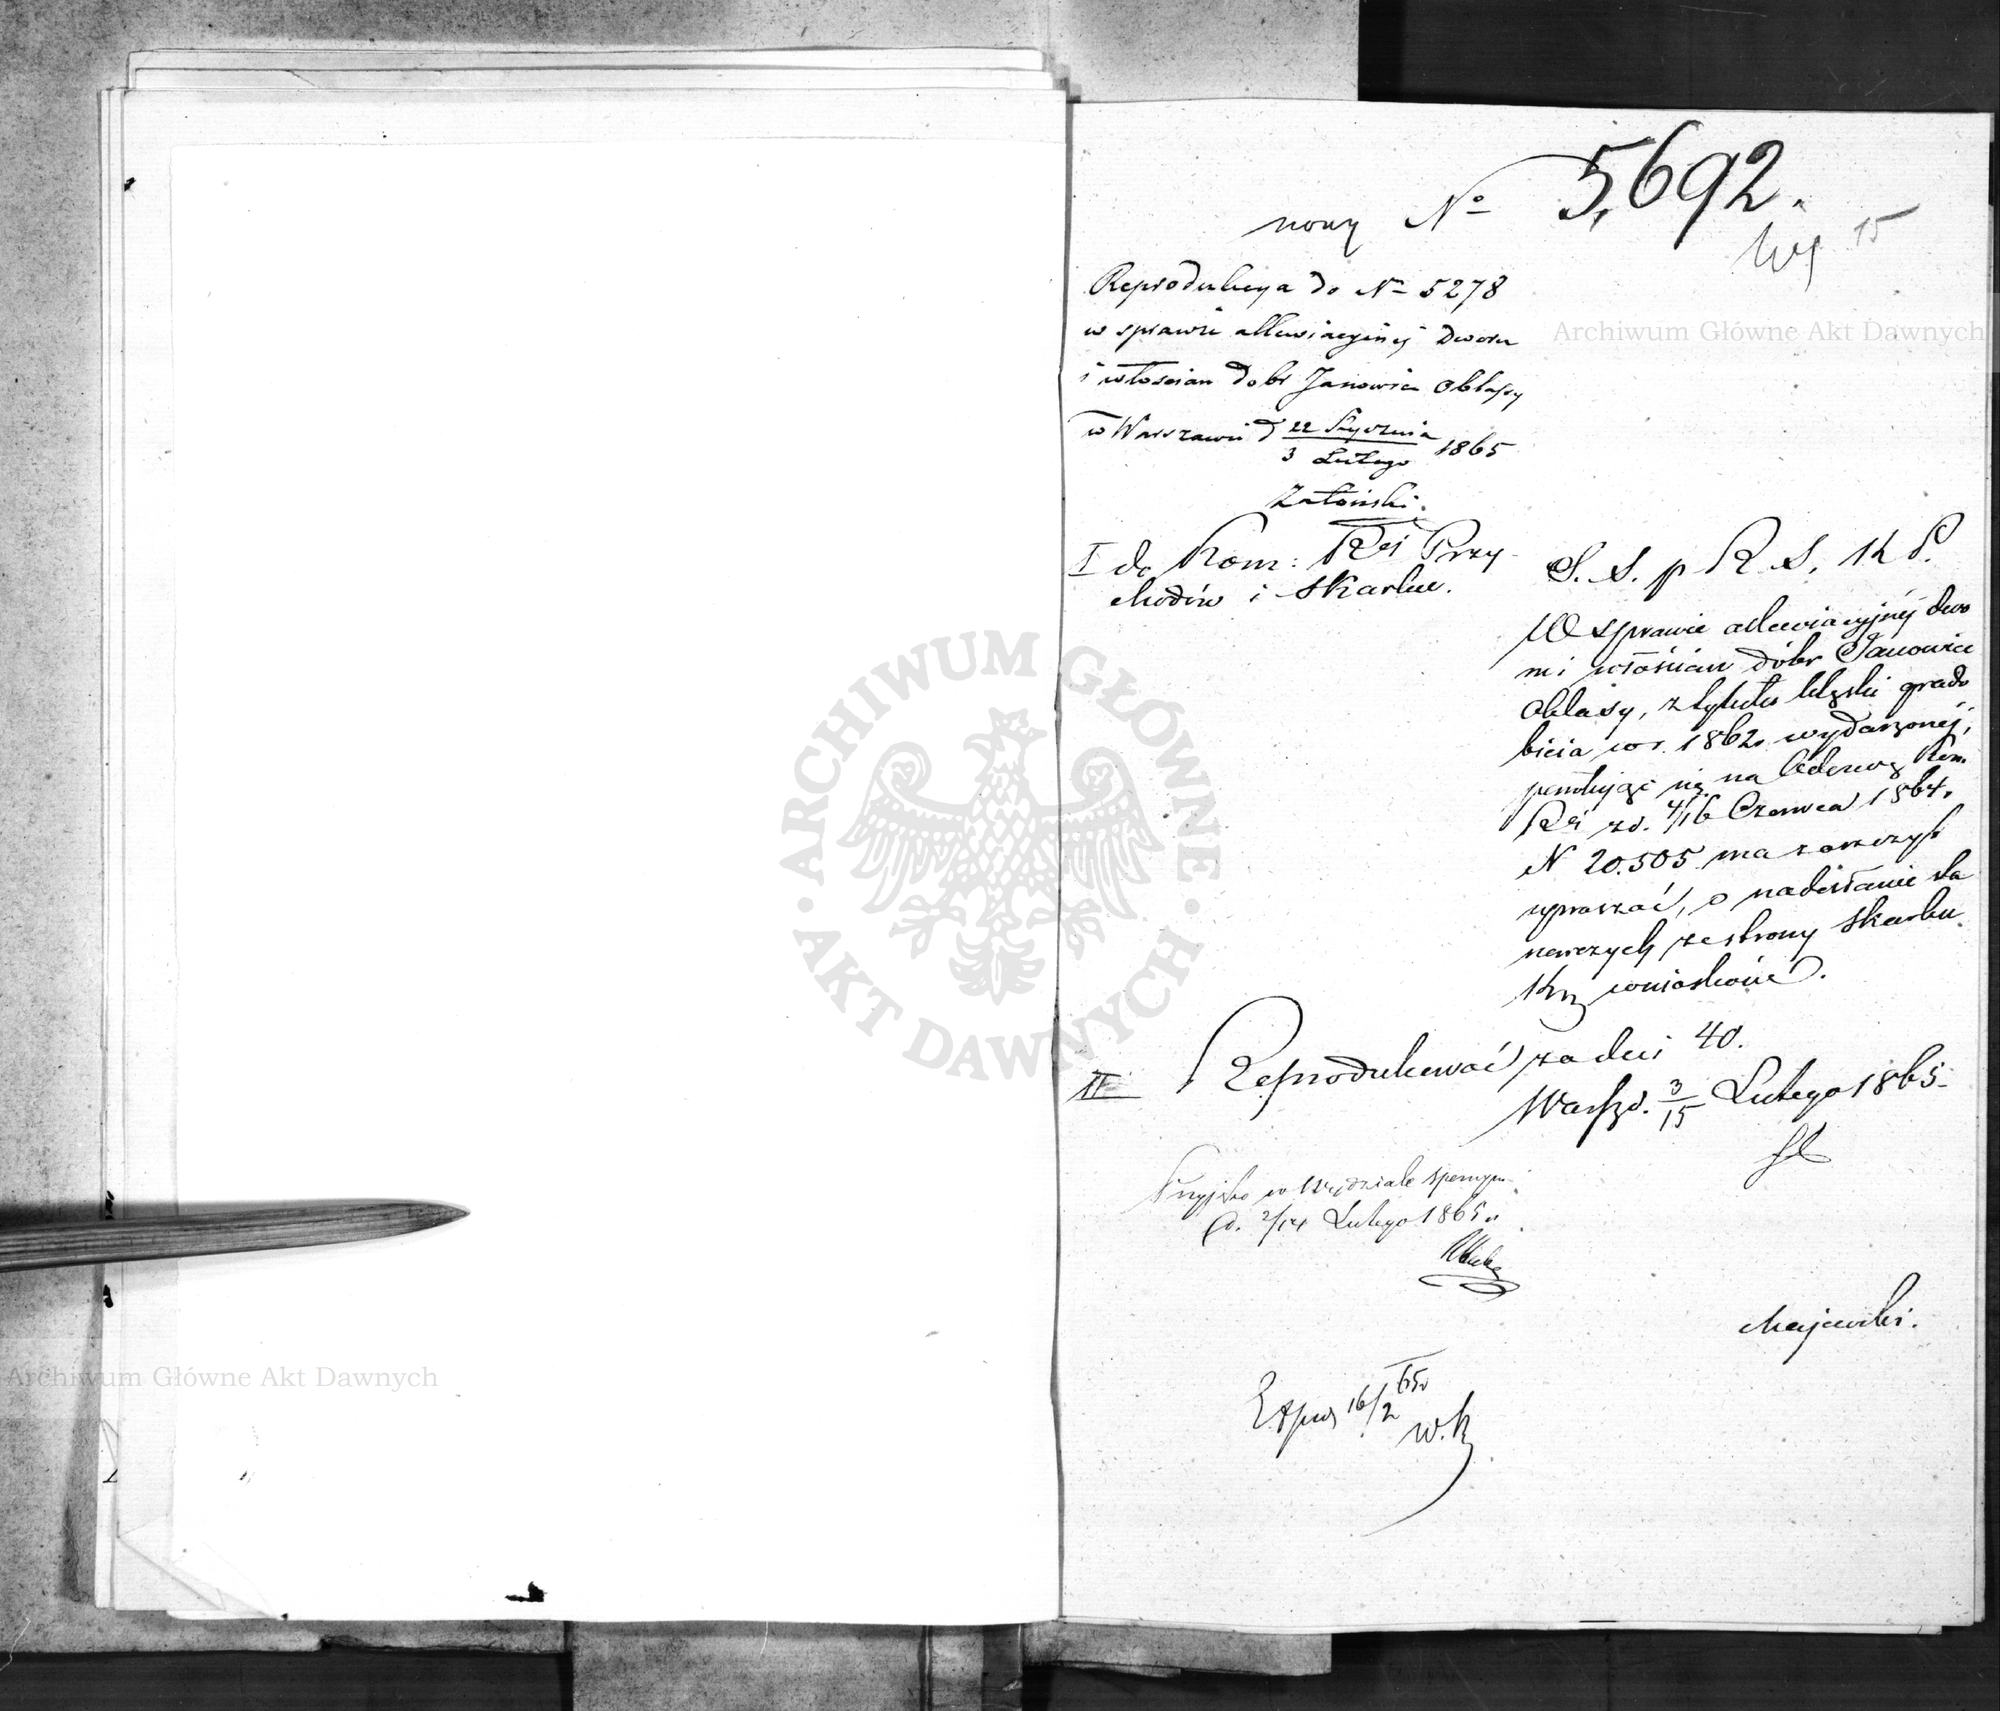 nowy № 5,692.
15
Reprodukcya do N 5278
w sprawie allewiacyjnej Dworu
i włościan dobr Janowiec Oblasy
w Warszawie d 22 Stycznia / 3 Lutego 1865
Zatoński.
I do Kom: Rzi Przy-
chodów i Skarbu.
S. S. p R S. K P.
W sprawie allewiacyjnej dwo
ru i włościan dóbr Janowiec
Oblasy, z tytułu klęski grado
bicia w r. 1862 wydarzonej,
powołując się na Odezwę Kom.
Rzi z d. 4/16 Czerwca 1864.
N 20.505 ma zaszczyt
upraszać, o nadesłanie sta
nowczych ze strony Skarbu
wniosków.
II Reprodukować za dni 40.
Warsz d. 3/15 Lutego 1865
Przyjęto w Wydziale
d. 2/14 Lutego 1865 r.
Majewski.
Exped 16/2 65
W. K
Archiwum Główne Akt Dawnych
Archiwum Główne Akt Dawnych
ARCHIWUM GŁÓWNE
AKT DAWNYCH